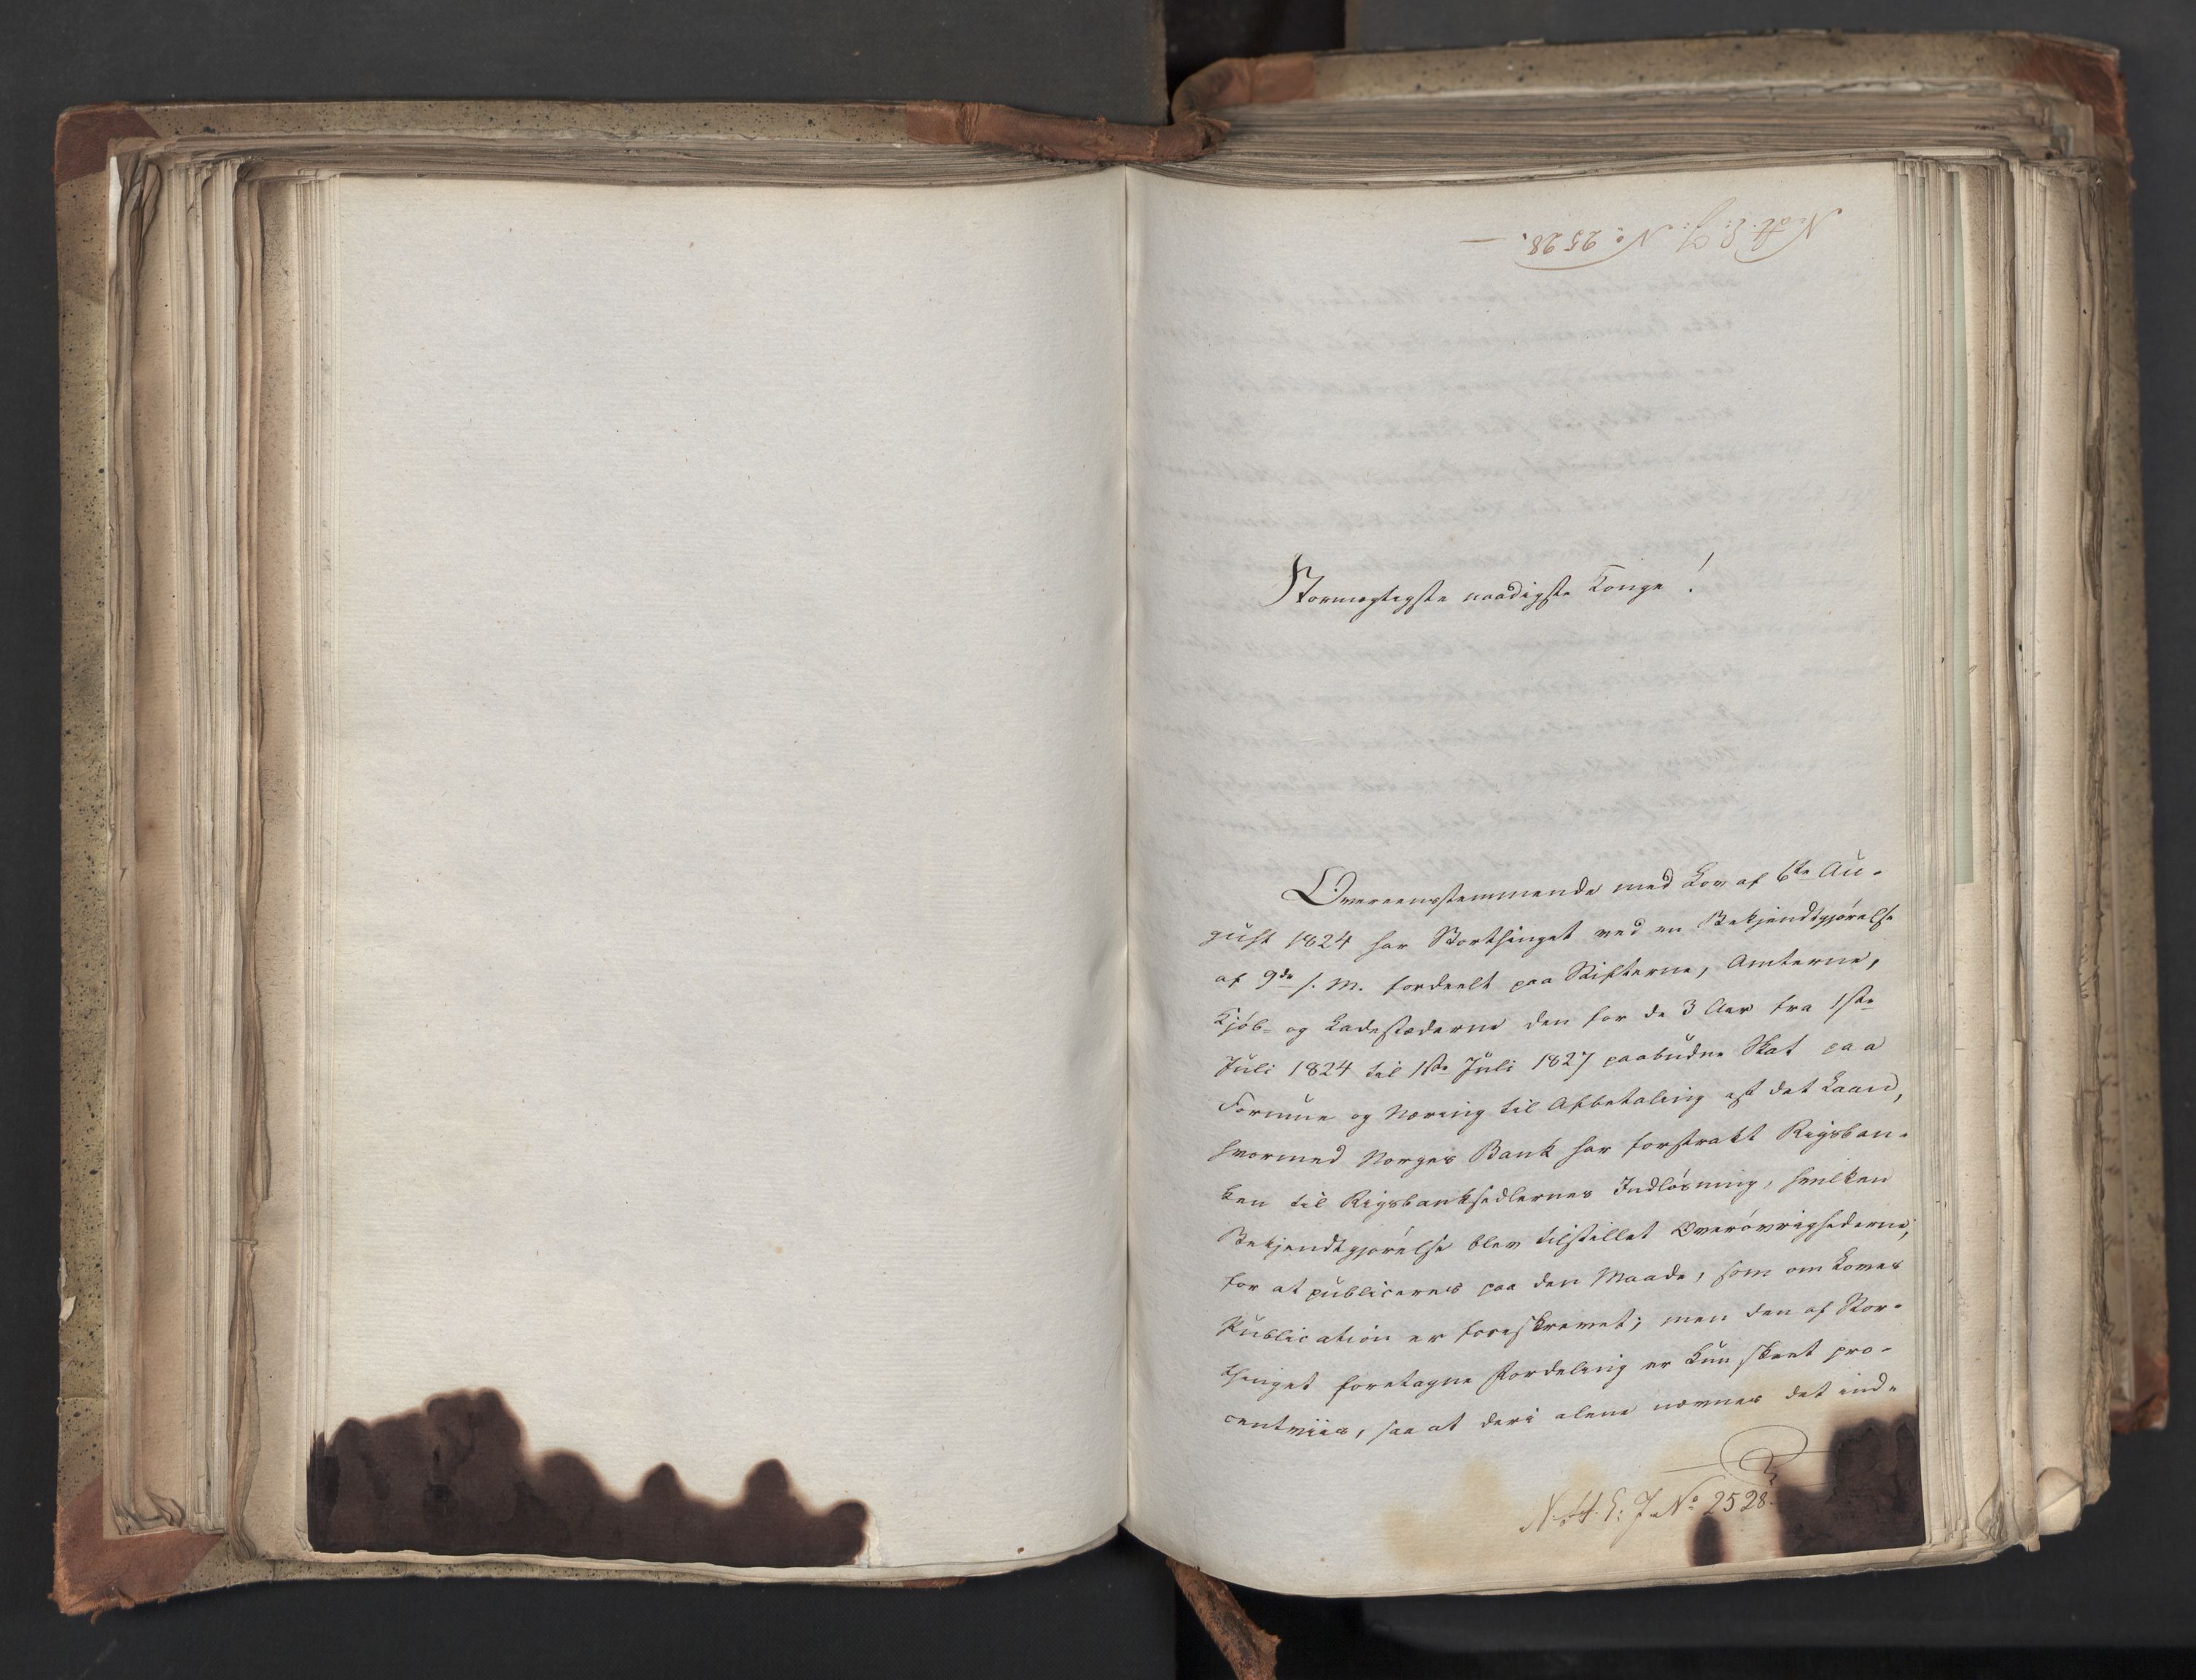 N: 2528.
Stormægtigste naadigste Konge!
Overeensstemmende med Lov af 6te Au-
gust 1824 har Storthinget ved en Bekjendtgjørelse
af 9de s. M. fordeelt paa Stifterne, Amterne,
Kjøb- og Ladestæderne den for de 3 Aar fra 1ste
Juli 1824 til 1ste Juli 1827 paabudne Skat paa
Formue og Næring til Afbetaling af det Laan,
hvormed Norges Bank har forstrakt Rigsban-
ken til Rigsbanksedlernes Indløsning, hvilken
Bekjendtgjørelse blev tilstillet Overøvrighederne,
for at publiceres paa den Maade, som om Loves
Publication er foreskrevet; men den af Stor-
thinget foretagne Fordeling er kun skeet pro-
centviis, saa at deri alene nævnes det ind-
No 2528.